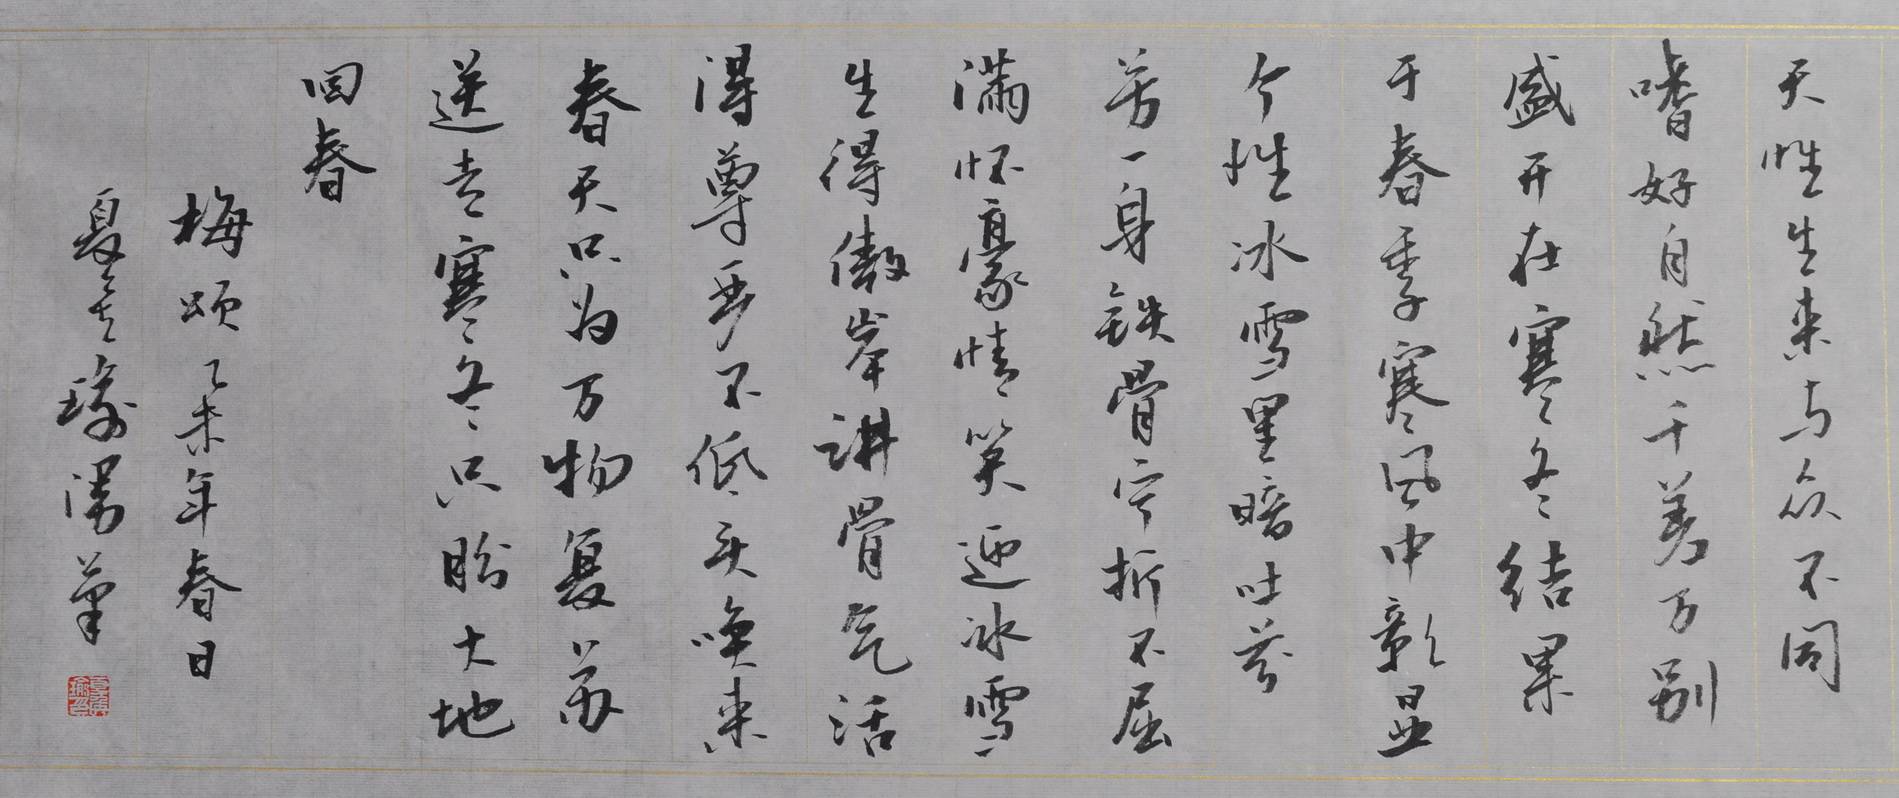 天性生来与众不同
嗜好自然千差万别
盛开在寒冬结果
于春季寒风中彰显
个性冰雪里暗吐芬
芳一身铁骨宁折不屈
满怀豪情笑迎冰雪
生得傲岸讲骨气活
得尊严不低头唤来
春天只为万物复苏
送去寒冬只盼大地
回春
梅颂乙未年春日
夏 瑜 并笔